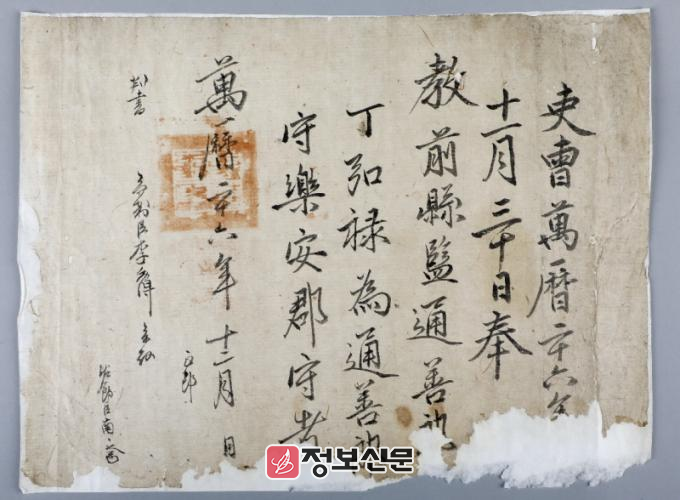 吏曹萬曆二十六年
十一月三十日奉
教前縣監通善郎
丁弘祿為通善郎
守樂安郡守者
萬曆二十六年十二月 日
判書
參判臣李
正郎
佐郎臣南
정보신문